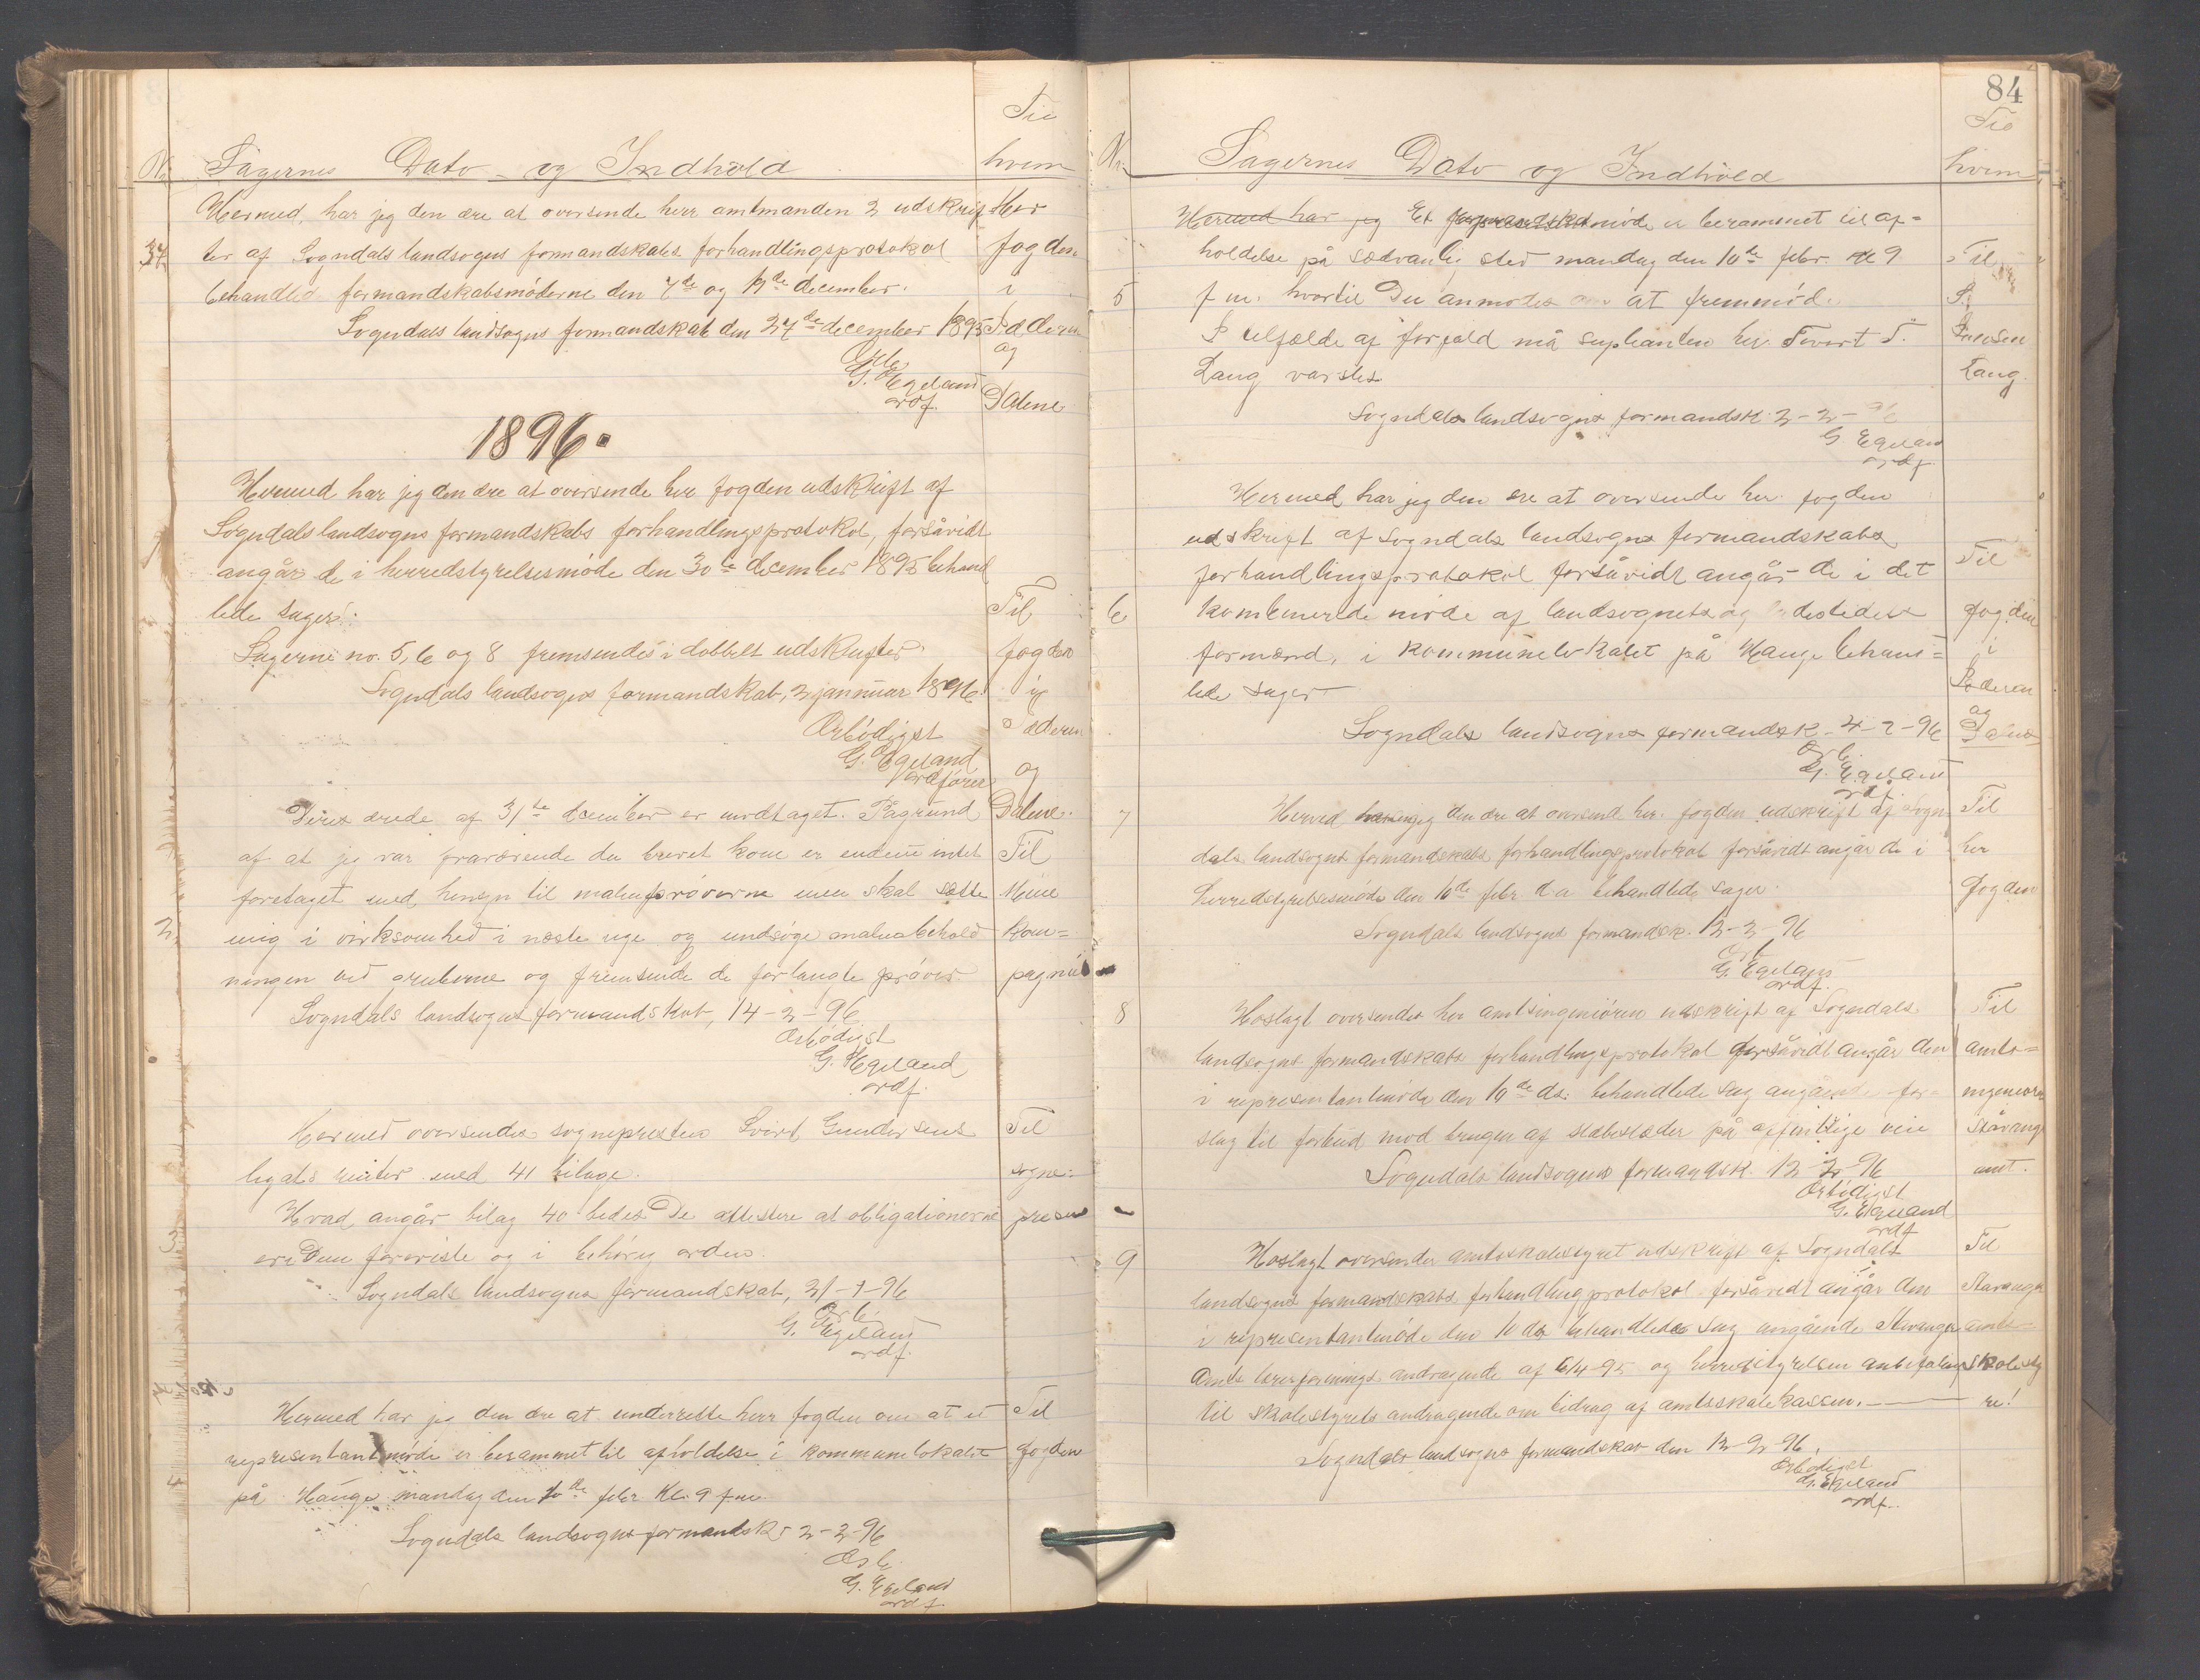 Til
No. Sagernes Dato og Indhold hvem
Hermed har jeg den ære at oversende herr amtmanden 2 udskrif Herr
34 ter af Sogndals landsogns formandskabs forhandlingsprotokol fogden
behandled formandskabsmöderne den 7de og december. i
Sogndals landsogns formandskab den 27de december 1895 Jæderen
og
Ærb.
G. Egeland
ordf. Dalene
1896.
Hermed har jeg den ære at oversende herr fogden udskrift af
Sogndals landsogns formandskabs forhandlingsprotokol, forsåvidt
1 angår de i herredstyrelsesmöde den 30te december 1895 behand
lede sager. Til
Sagerne no. 5, 6 og 8 fremsendes i dobbelt udskrifter. fogden
Sogndals landsogns formandskab, 2 januar 1896. i
Ærbödigst Jæderen
G. Egeland
ordförer og
Deres ærede af 31te december er modtaget. Pågrund Dalene.
af at jeg var fraværende da brevet kom er endnu intet Til
foretaget med hensyn til malmpröverne men skal sætte Mine
2 mig i virksomhed i næste uge og undsöge malmbehold kom=
ningen ved gruberne og fremsende de forlangte pröver. pagniet
Sogndals landsogns formandskab, 14-2-96
Ærbödigst
G. Egeland
ordf.
Hermed oversendes sognepresten Sivert Gundersens Til
legats med 41 bilage. sogne=
Hvad angår bilag 40 bedes De attestere at obligationerne presten
3 ere Dem foreviste og i behörig orden.
Sogndals landsogns formandskab, 31-1-96
Ærb.
G. Egeland
ordf.
Hermed har jeg den ære at underrette herr fogden om at et Til
representantmöde er berammet til afholdelse i kommunelokalet fogden
4 på Hauge mandag den 10de febr Kl. 9 fm.
Sogndals landsogns formandsk. 2-2-96
Ærb.
G. Egeland
ordf.
84
Til
No. Sagernes Dato og Indhold hvem
Hermed har jeg Et formandskabsmöde er berammet til af=
holdelse på sædvanlig sted mandag den 10de febr. kl 9 Til
5 fm. hvortil Du anmodes om at fremmöde.
I tilfælde af forfald må suplianten hr. Tovort T.
Laug varsles. Laug.
Sogndals landsogns formandsk. 2-2-96
G Egeland
ordf.
Hermed har jeg den ære at oversende hr. fogden
udskrift af Sogndals landsogns formandskabs
forhandlingsprotokol forsåvidt angår de i det Til
6 kombinerede möde af landsognets og ladestedets fogden
formænd, i kommunelokalet på Hauge behand= i
lede sager. Jæderen
og
Sogndals landsogns formandsk. 4-2-96 Dalene
Ærb.
G. Egeland
ordf.
7 Herved har jeg den ære at oversende hr. fogden udskrift af Sogn Til
dals landsogns formandskabs forhandlingsprotokol forsåvidt angår de i hr
herredstyrelsesmöde den 10de febr d a behandlede sager. fogden
Sogndals landsogns formandsk. 12-2-96
Ærb
G. Egeland
ordf.
8 Hoslagt oversendes hr amtsingeniören udskrift af Sogndals Til
landsogns formandskabs forhandlingsprotokol forsåvidt angår den amts=
i representantmöde den 10de ds. behandlede sag angående for= ingeniören
slag til forbud mod brugen af slæbeslæder på offentlige veie Stavanger
Sogndals landsogns formandsk. 12-2-96 amt.
Ærbödigst
G. Egeland
ordf
9 Hoslagt oversendes amtsskolestyret udskrift af Sogndals Til
landsogns formandskabs forhandlingsprotokol forsåvidt angår den Stavanger
i representantmöde den 10 ds behandledes sag angående Stavanger amts
Amts lærerforenings andragende af 6/4-95 og herredstyrelsen anbefaling skolesty
til skolestyrets andragende om bidrag af amtsskolekassen. re!
Sogndals landsogns formandskab den 12-2-96.
Ærbödigst
G. Egeland
ordf.